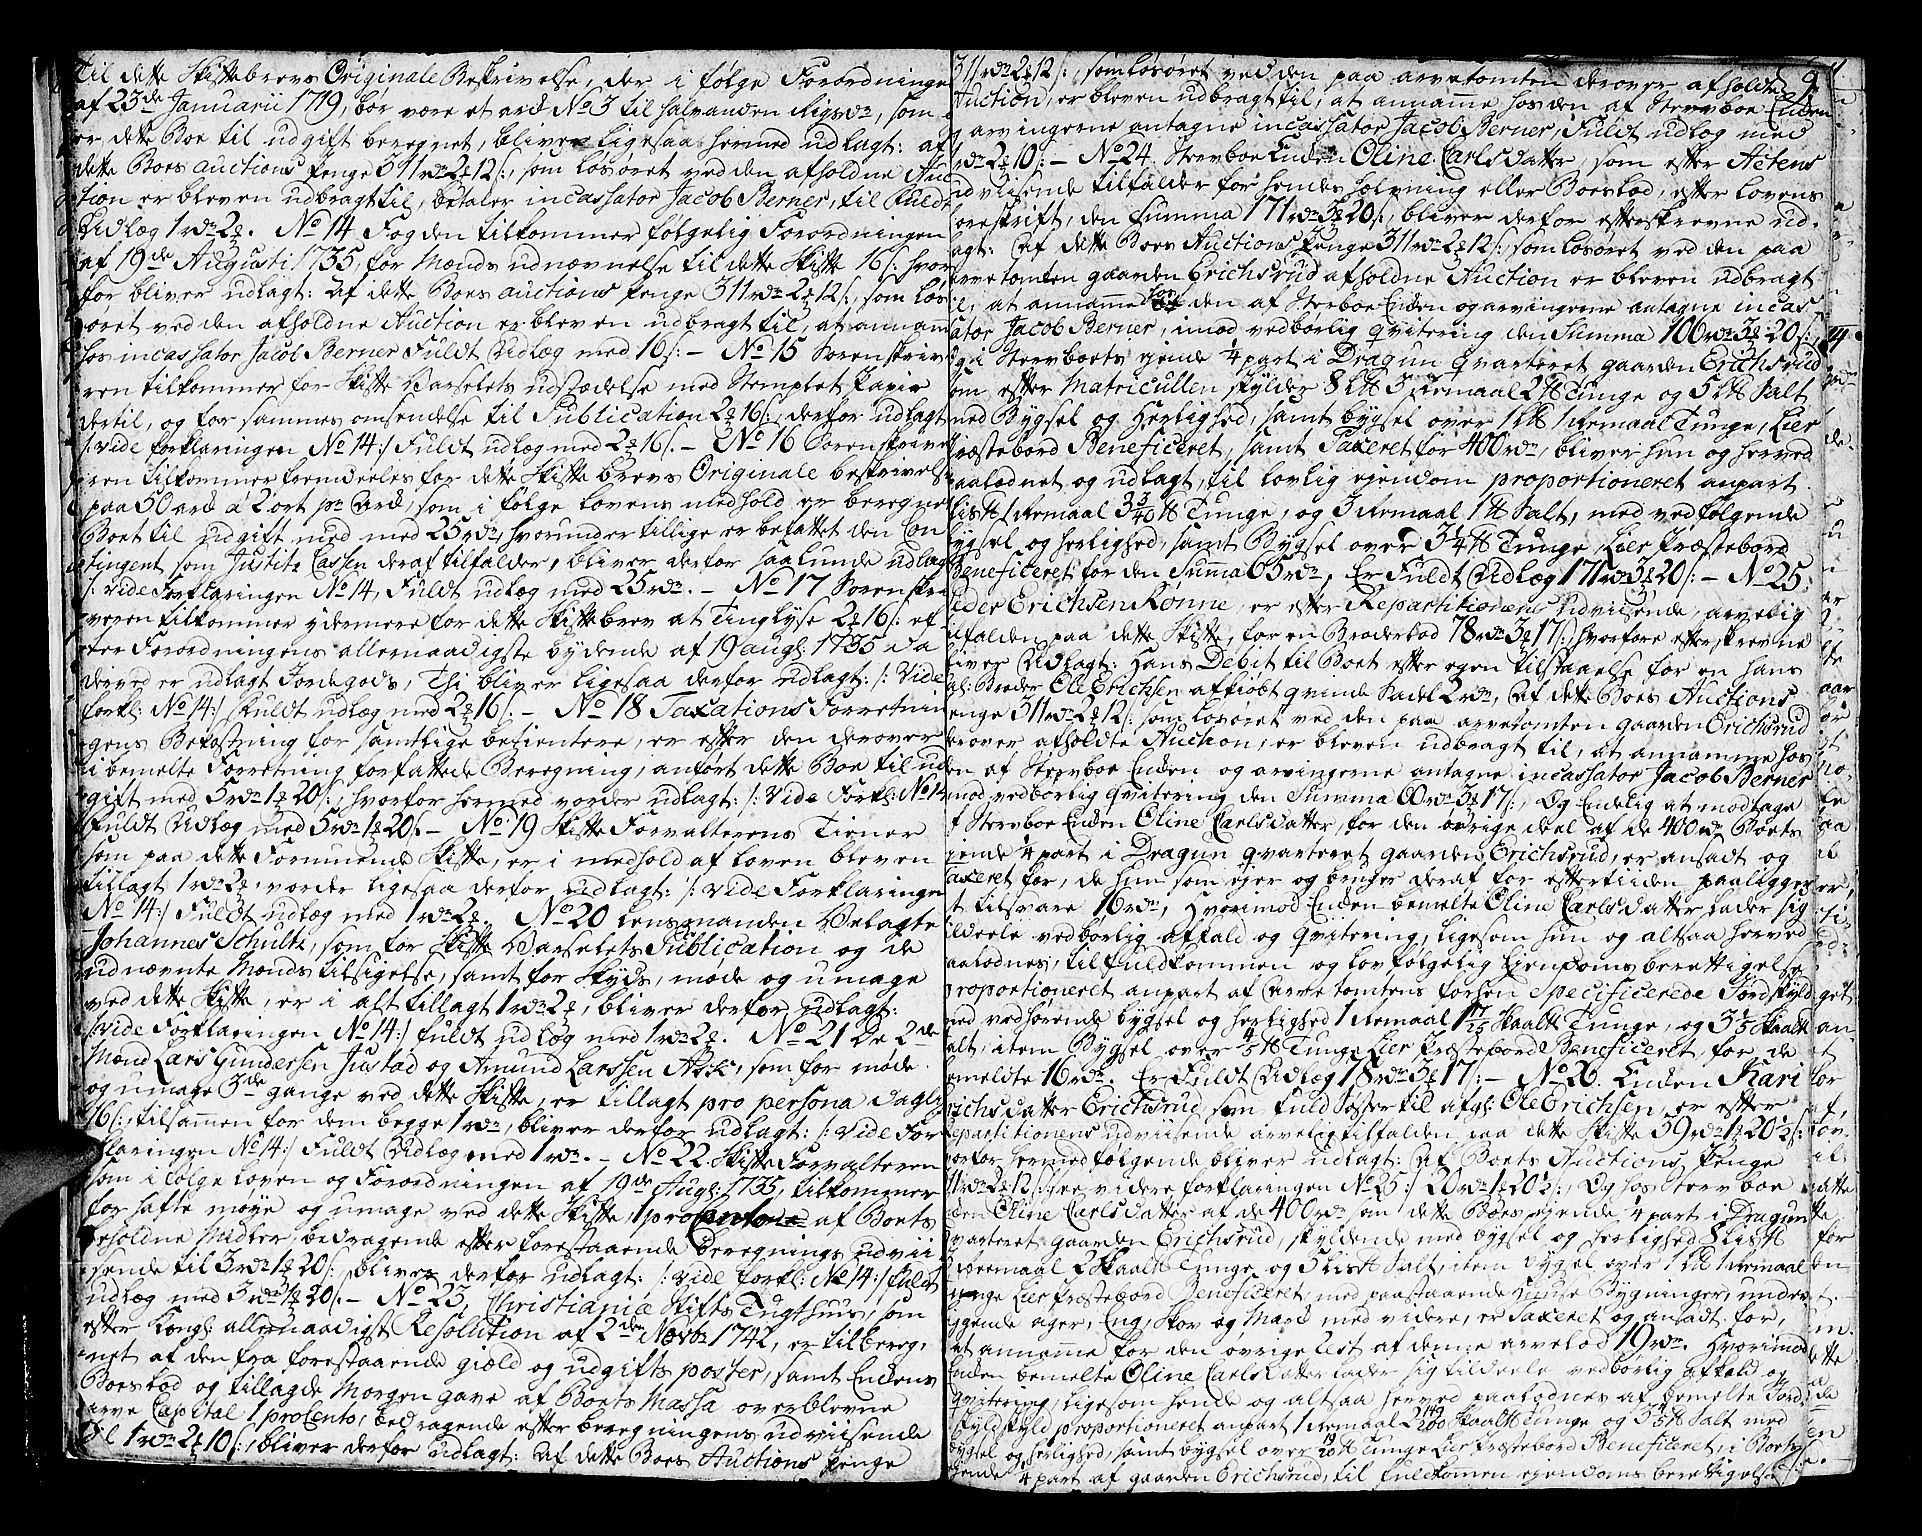 Til dette Skiftebrevs Originale Beskrivelse, der i følge Forordningen
af 23de Januarii 1719, bør være et ark No 3 til halvanden Rigsdr, som
er dette Boe til udgift beregnet, bliver ligesaa hermed udlagt: af
dette Boes auctions penge 311 rdr 2 ₰ 12 s:, som løsøret ved den afholdne Auc
tion er bleven udbragt til, betaler incassator Jacob Berner, til Fuldt
Udlæg 1 rdr 2 ₰. No 14 Fogden tilkommer følgelig Forordningen
af 19de Augusti 1735, for Mænds udnævnelse til dette Skifte 16 s: hvor
for bliver udlagt: af dette Boes auctions penge 311 rdr 2 ₰ 12 s:, som løs
øret ved den afholdne Auction er bleven udbragt til, at annam
hos incassator Jacob Berner Fuldt Udlæg med 16 s: – No 15 Sorenskriv
ren tilkommer for Skifte Varselets udstædelse med Stemplet Papir
dertil, og for sammes omsendelse til Publication 2 ₰ 16 s:, derfor udlagt
/: vide forklaringen No 14:/ Fuldt udlæg med 2 ₰ 16 s. – No 16 Sorenskrive
ren tilkommer fremdeeles for dette Skifte brevs Originale beskrivelse
paa 50 ark á 2 ort pr Ark, som i følge Lovens medhold er beregnet
Boet til udgift med med 25 rdr, hvorunder tillige er befattet den Con
tingent, som Justitz Cassen deraf tilfalder, bliver derfor saalunde udlagt
/: vide Forklaringen No 14, Fuldt udlæg med 25 rdr. – No 17 Sorenskri
veren tilkommer ydermere for dette Skifte brev at Tinglyse 2 ₰ 16 s: ef
ter Forordningens allernaadigste bydende af 19 augl: 1735 da
derved er udlagt Jordegods, Thi bliver ligesaa derfor udlagt: /: vide
forkl: No 14:/ Fuldt udlæg med 2 ₰ 16 s. – No 18 Taxations Forretnin
gens Bekostning for samtlige betientere, er efter den derover
i bemelte Forretning forfattede Beregning, anført dette Boe til ud
gift med 5 rdr 1 ₰ 20 s:, hvorfor hermed vorder udlagt: /: vide Forkl: No 14
Fuldt Udlæg med 5 rdr 1 ₰ 20 s. – No 19 Skifte Forvalterens Tiener
som paa dette Formuende Skifte, er i medhold af loven bleven
tillagt 1 rdr 2 ₰, vorder ligesaa derfor udlagt: /: vide Forklaringen
No 14:/ Fuldt udlæg med 1 rdr 2 ₰. No 20 Lensmanden Velagte
Johannes Schultz, som for Skifte Varselets Publication og de
udnævnte Mænds tilsigelse, samt for Skyds, møde og umage
ved dette Skifte, er i alt tillagt 1 rdr 2 ₰, bliver derfor udlagt:
/: vide Forklaringen No 14:/ fuldt udlæg med 1 rdr 2 ₰. No 21 De 2de
Mænd Lars Gundersen Justad og Amund Larssen Ask, som for møde
og umage 3de gange ved dette Skifte, er tillagt pro persona daglig
16 s:, tilsammen for dem begge 1 rdr, bliver derfor udlagt: /: vide For
klaringen No 14:/ Fuldt Udlæg med 1 rdr. – No 22 Skifte Forvalteren
som i følge loven og Forordningen af 19de Augl: 1735, tilkommer
for hafte møye og umage ved dette Skifte, 1 pro Cento af Boets
beholdne Midler, bedragende efter forestaaende beregnings udvii
sende til 3 rdr 1 ₰ 20 s: bliver derfor udlagt: /: vide forkl: No 14:/ fuldt
udlæg med 3 rdr 1 ₰ 20 s. – No 23, Christiania Stifts Tugthus, som
efter Kongl: allernaadigst Resolution af 2den Novbr 1742, er tilbereg,
net af den fra forestaaende giæld og udgifts poster, samt Enkens
Boeslod og tillagde Morgen gave af Boets Massa overblevne
arve Capital 1 pro Cento, bedragende efter beregningens udviisende
til 1 rdr 2 ₰ 10 s:, bliver derfor udlagt: af dette Boes Auctions penge
311 rdr 2 ₰ 12 s:, som løsøret ved den paa arvetomten derover afholdte 9
Auction, er bleven udbragt til, at annamme hos den af Stervboe Enken
og arvingerne antagne incassator Jacob Berner, Fuldt udlæg med
1 rdr 2 ₰ 10 s: – No 24. Stervboe Enken Oline Carlsdatter, som efter Actens
udviisende tilfalder for hendes halvning eller Boeslod, efter lovens
foreskrift, den Summa 171 rdr 3 ₰ 20 s:, bliver derfor efterskrevne ud
lagt: af dette Boes Auctions Penge 311 rdr 2 ₰ 12 s: som løsøret ved den paa
arvetomten gaarden Erichsrud afholdne Auction er bleven udbragt
til, at annamme hos den af Stervboe Enken og arvingerne antagne incas
sator Jacob Berner, imod vedbørlig qvitering den Summa 106 rdr 3 ₰ 20 s:
og i Stervboets ejende ¼ part i Dragun qvarteret gaarden Erichsrud
som efter Matricullen skylder 8 L℔ 3 Remaal 2 ℔ Tunge og 5 L℔ Salt
med Bygsel og Herlighed, samt bygsel over 1 L℔ 1 Remaal Tunge, Lier
Præstebord Beneficeret, samt Taxeret for 400 rdr, bliver hun og herved
paalodnet og udlagt, til lovlig ejendom proportioneret anpart
1 Lis℔ 1 Remaal 3 3/40 ℔ Tunge, og 3 Remaal 1 ℔ Salt, med vedfølgende
bygsel og herlighed, samt Bygsel over 3 ¼ ℔ Tunge, Lier Præstebord
Beneficeret for den Summa 65 rdr, Er Fuldt Udlæg 171 rdr 3 ₰ 20 s: – No 25:
Peder Erichsen Rønne, er efter Repartitionens udviisende, arvelig
tilfalden paa dette Skifte, for en Broderlod 78 rdr 3 ₰ 17 s: hvorfore efterskrevne
bliver Udlagt: Hans Debit til Boet efter egen tilstaaelse for en hans
afg: Broder Ole Erichsen afkiøbt qvinde Sadel 2 rdr, af dette Boes Auctions
penge 311 rdr 2 ₰ 12 s: som løsøret ved den paa arvetomten gaarden Erichsrud
derover afholdte Auction, er bleven udbragt til, at annamme hos
den af Stervboe Enken og arvingerne antagne incassator Jacob Berner
imod vedbørlig qvitering den Summa 60 rdr 3 ₰ 17 s:, Og Endelig at modtage
af Stervboe Enken Oline Carlsdatter, for den øvrige deel af de 400 rdr Boets
ejende ¼ part i Dragun qvarteret gaarden Erichsrud, er ansadt og
taxeret for, de hun som ejer og bruger deraf for eftertiiden paalegges
at tilsvare 16 rdr, Hvorimod Enken bemelte Oline Carlsdatter lader sig
tildeele vedbørlig affald og qvitering, ligesom hun og altsaa herved
paalodnes, til fuldkommen og lovfølgelig Eiendoms berettigelse
proportioneret anpart af arve tomtens forhen Specificerede Jordskyld
med vedhørende bygsel og herlighed 1 Remaal 1 17/25 Skaal℔ Tunge, og 3 1/5 Skaal℔
Salt, item Bygsel over 4/5 ℔ Tunge Lier Præstebord Beneficeret, for de
omeldte 16 rdr. Er Fuldt Udlæg 78 rdr 3 ₰ 17 s: – No 26. Enken Kari
Erichsdatter Erichsrud, som fuld Søster til afg: Ole Erichsen, er efter
Repartitionens udviisende arvelig tilfalden paa dette Skifte 39 rdr 1 ₰ 20 ½ s:
hvorfor hermed følgende bliver udlagt: af Boets Auctions Penge
311 rdr 2 ₰ 12 s: /: see videre forklaringen No 25:/ 20 rdr 1 ₰ 20 ½ s:, Og hos Stervboe
Enken Oline Carlsdatter af de 400 rdr som dette Boes ejende ¼ part i Dragun
qvarteret gaarden Erichsrud, skyldende med bygsel og herlighed 8 Lis℔
3 Remaal 2 Skaal℔ Tunge og 5 Lis℔ Salt, item Bygsel over 1 L℔ 1 Remaal
Tunge Lier Præstebord Beneficeret, med paastaaende Huuse Bygninger, underlig
ggende ager, Eng, Skov og Mark med videre, er Taxeret og ansadt for,
at annamme for den øvrige Rest af denne arvelod 19 rdr. Hvorimod
Enken bemelte Oline Carlsdatter lader sig tildeele vedbørlig affald og
Qvitering, ligesom hende og altsaa herved paalodnes af bemelte Jord
skyldskyld proportioneret anpart 1 Remaal 2 149/200 Skaal℔ Tunge og 3 4/5 ℔ Salt med
bygsel og herlighed, samt bygsel over 19/20 ℔ Tunge Lier Præstebord Beneficeret, i Boets
ejende ¼ part af gaarden Erichsrud, til fuldkommen ejendoms berettigelse